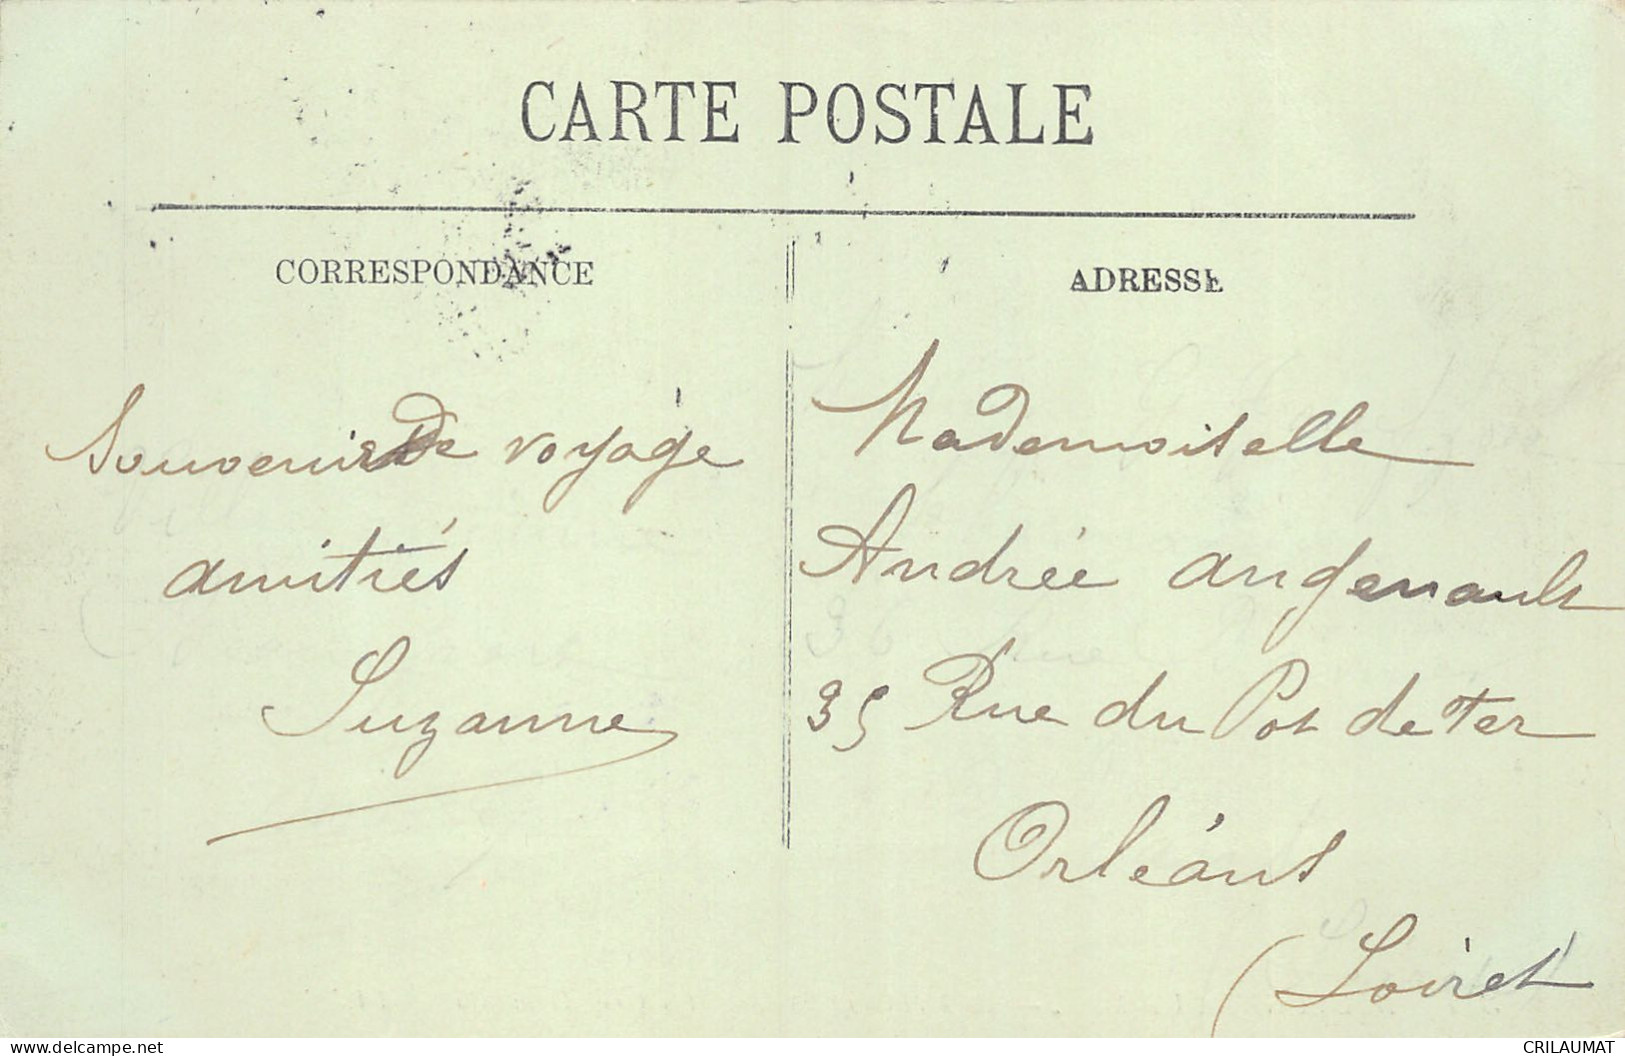 CARTE POSTALE
CORRESPONDANCE
Souvenir de voyage
amitiés
Suzanne
ADRESSE
Mademoiselle
Andrée Angenault
35 Rue du Pot de Fer
Orléans
(Loiret)
delcampe.net
CRILAUMAT